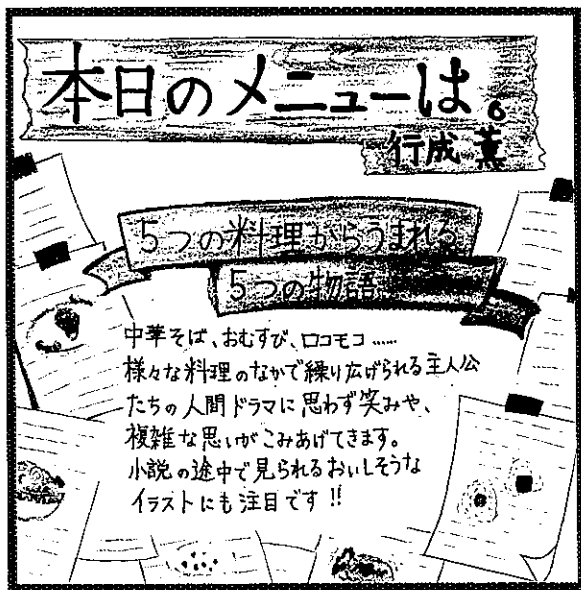 本日のメニューは。
行成 薫
5つの料理からうまれる
5つの物語
中華そば、おむすび、ロコモコ……
様々な料理のなかで繰り広げられる主人公
たちの人間ドラマに思わず笑みや、
複雑な思いがこみあげてきます。
小説の途中で見られるおいしそうな
イラストにも注目です!!